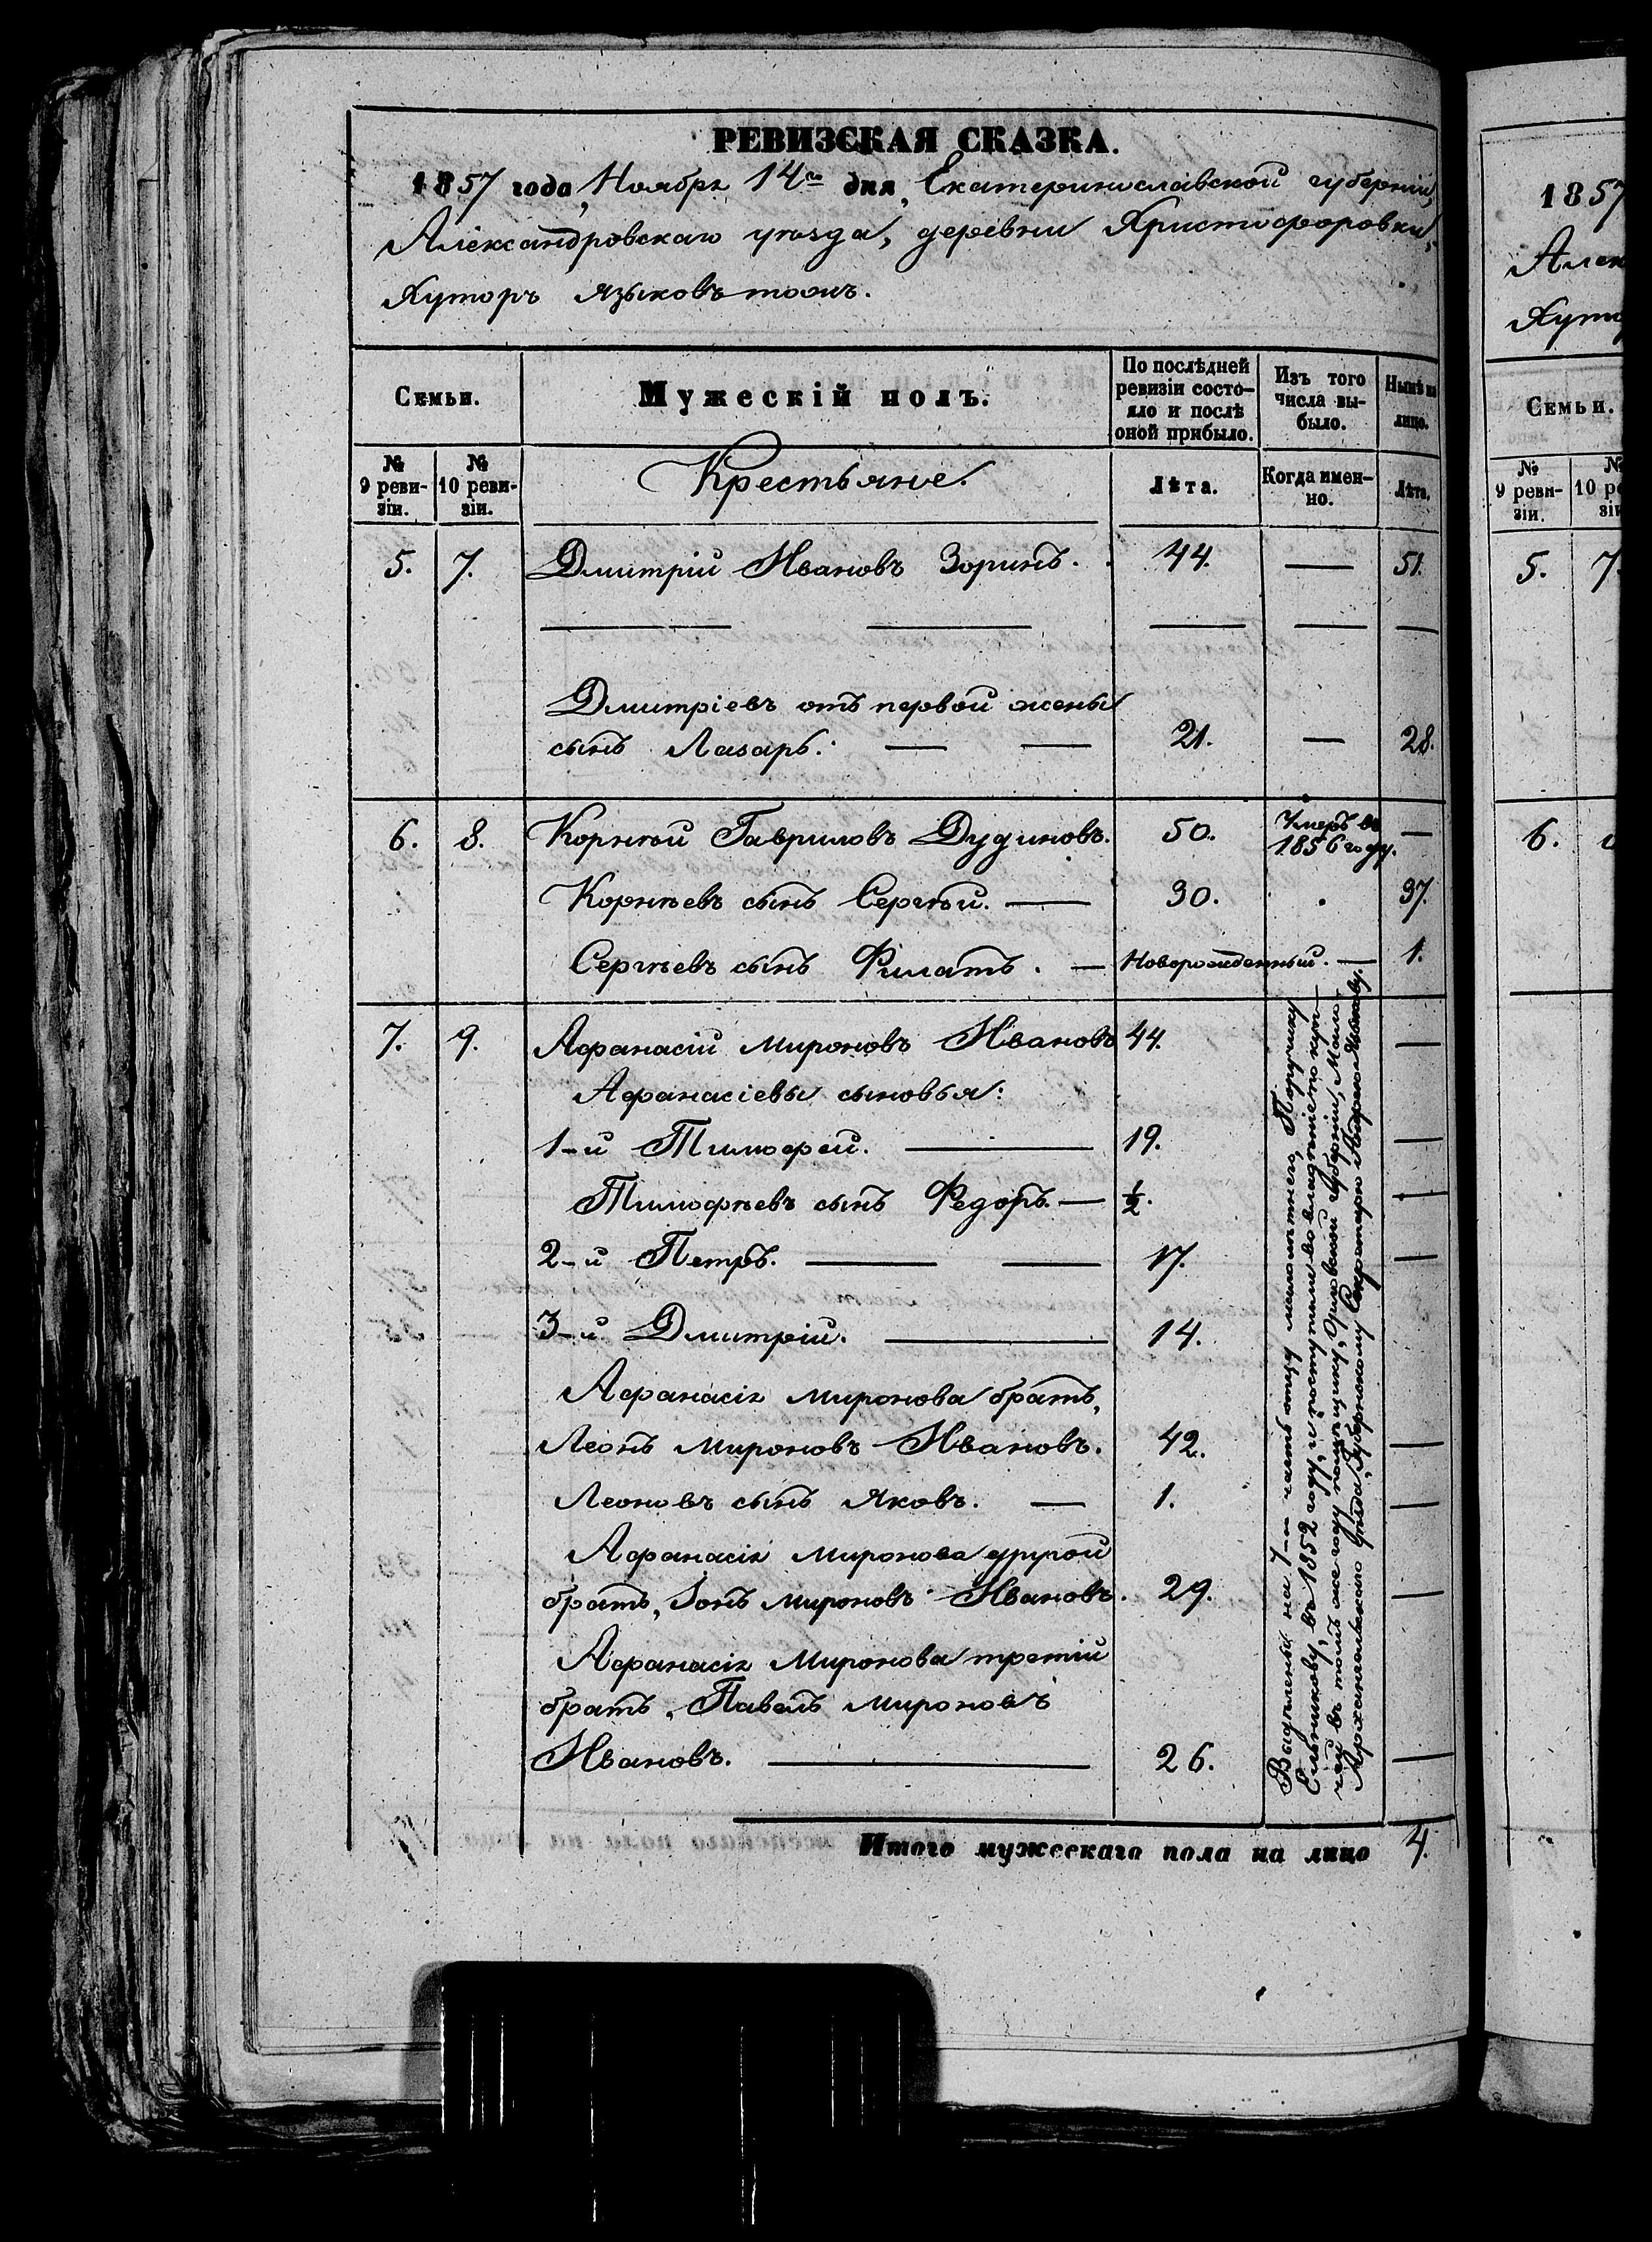 РЕВИЗСКАЯ СКАЗКА.
1857 года, Ноября 14го дня, Екатеринославской губерніи,
Александровскаго уѣзда, деревни Христофоровки,
Хуторъ Языковъ тожъ.
Семьи.
Мужескій полъ.
По послѣдней ревизіи состо-
яло и послѣ
оной прибыло.
Изъ того
числа вы-
было.
Нынѣ на
лицо.
№
9 реви-
зіи.
№
10 реви-
зіи.
Крестьяне.
Лѣта.
Когда имен-
но.
Лѣта.
5. 7. Дмитрій Ивановъ Зоринъ. 44. — 51.
Дмитріевъ отъ первой жены
сынъ Лазарь. — — 21. — 28.
6. 8. Корнѣй Гавриловъ Дудиновъ. 50. Умеръ въ
1856 году. —
Корнѣевъ сынъ Сергѣй. — 30. 37.
Сергѣевъ сынъ Филатъ. — Новорожденный. — 1.
7. 9. Афанасій Мироновъ Ивановъ 44. —
Афанасіевы сыновья:
1-й Тимофей. — 19. —
Тимофѣевъ сынъ Федоръ. — ½. —
2-й Петръ. — — 17. —
3-й Дмитрій. — 14.
Афанасія Миронова братъ,
Леонъ Мироновъ Ивановъ. 42. —
Леоновъ сынъ Яковъ. — 1. —
Афанасія Миронова другой
братъ, Іонъ Мироновъ Ивановъ. 29. —
Афанасія Миронова третій
братъ, Павелъ Мироновъ
Ивановъ. — 26. —
Выдѣлены на 7-ю часть отцу малолѣтняго, Поручику
Ельникову, въ 1852 году, и поступили во владѣніе по куп-
чей въ томъ же году помѣщику, Орловской губерніи, Мало-
Архангельскаго уѣзда, Губернскому Секретарю
Итого мужескаго пола на лицо 4.
1857
Алек
Хуто
Семьи.
№
9 реви-
зіи.
№
10 ре
зіи
5. 7.
6.